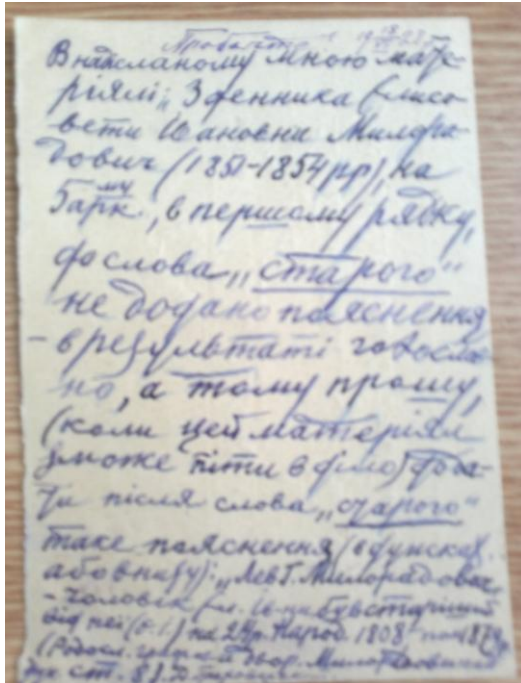 В надісланому мною мате-
ріялі „З денника Єлиса-
вети Ивановни Милора-
дович (1851-1854 рр), на
5 арк., в першому рядку,
до слова „старого"
не додано пояснення
- в результаті
но, а тому прошу,
(коли цей матеріял
зможе піти в діло) дода-
ти після слова „старого"
таке пояснення (в дужках
або внизу): „Лев Г. Милорадович
- чоловік Єл. Ив-ни був старіший
від неї на 24 р. Народ. 1808